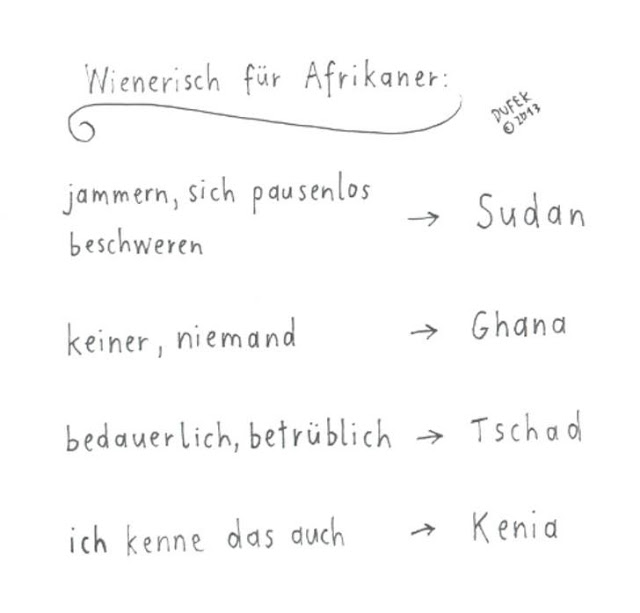 Wienerisch für Afrikaner:
DUFEK
©2013
jammern, sich pausenlos
beschweren
→ Sudan
keiner, niemand → Ghana
bedauerlich, betrüblich → Tschad
ich kenne das auch → Kenia